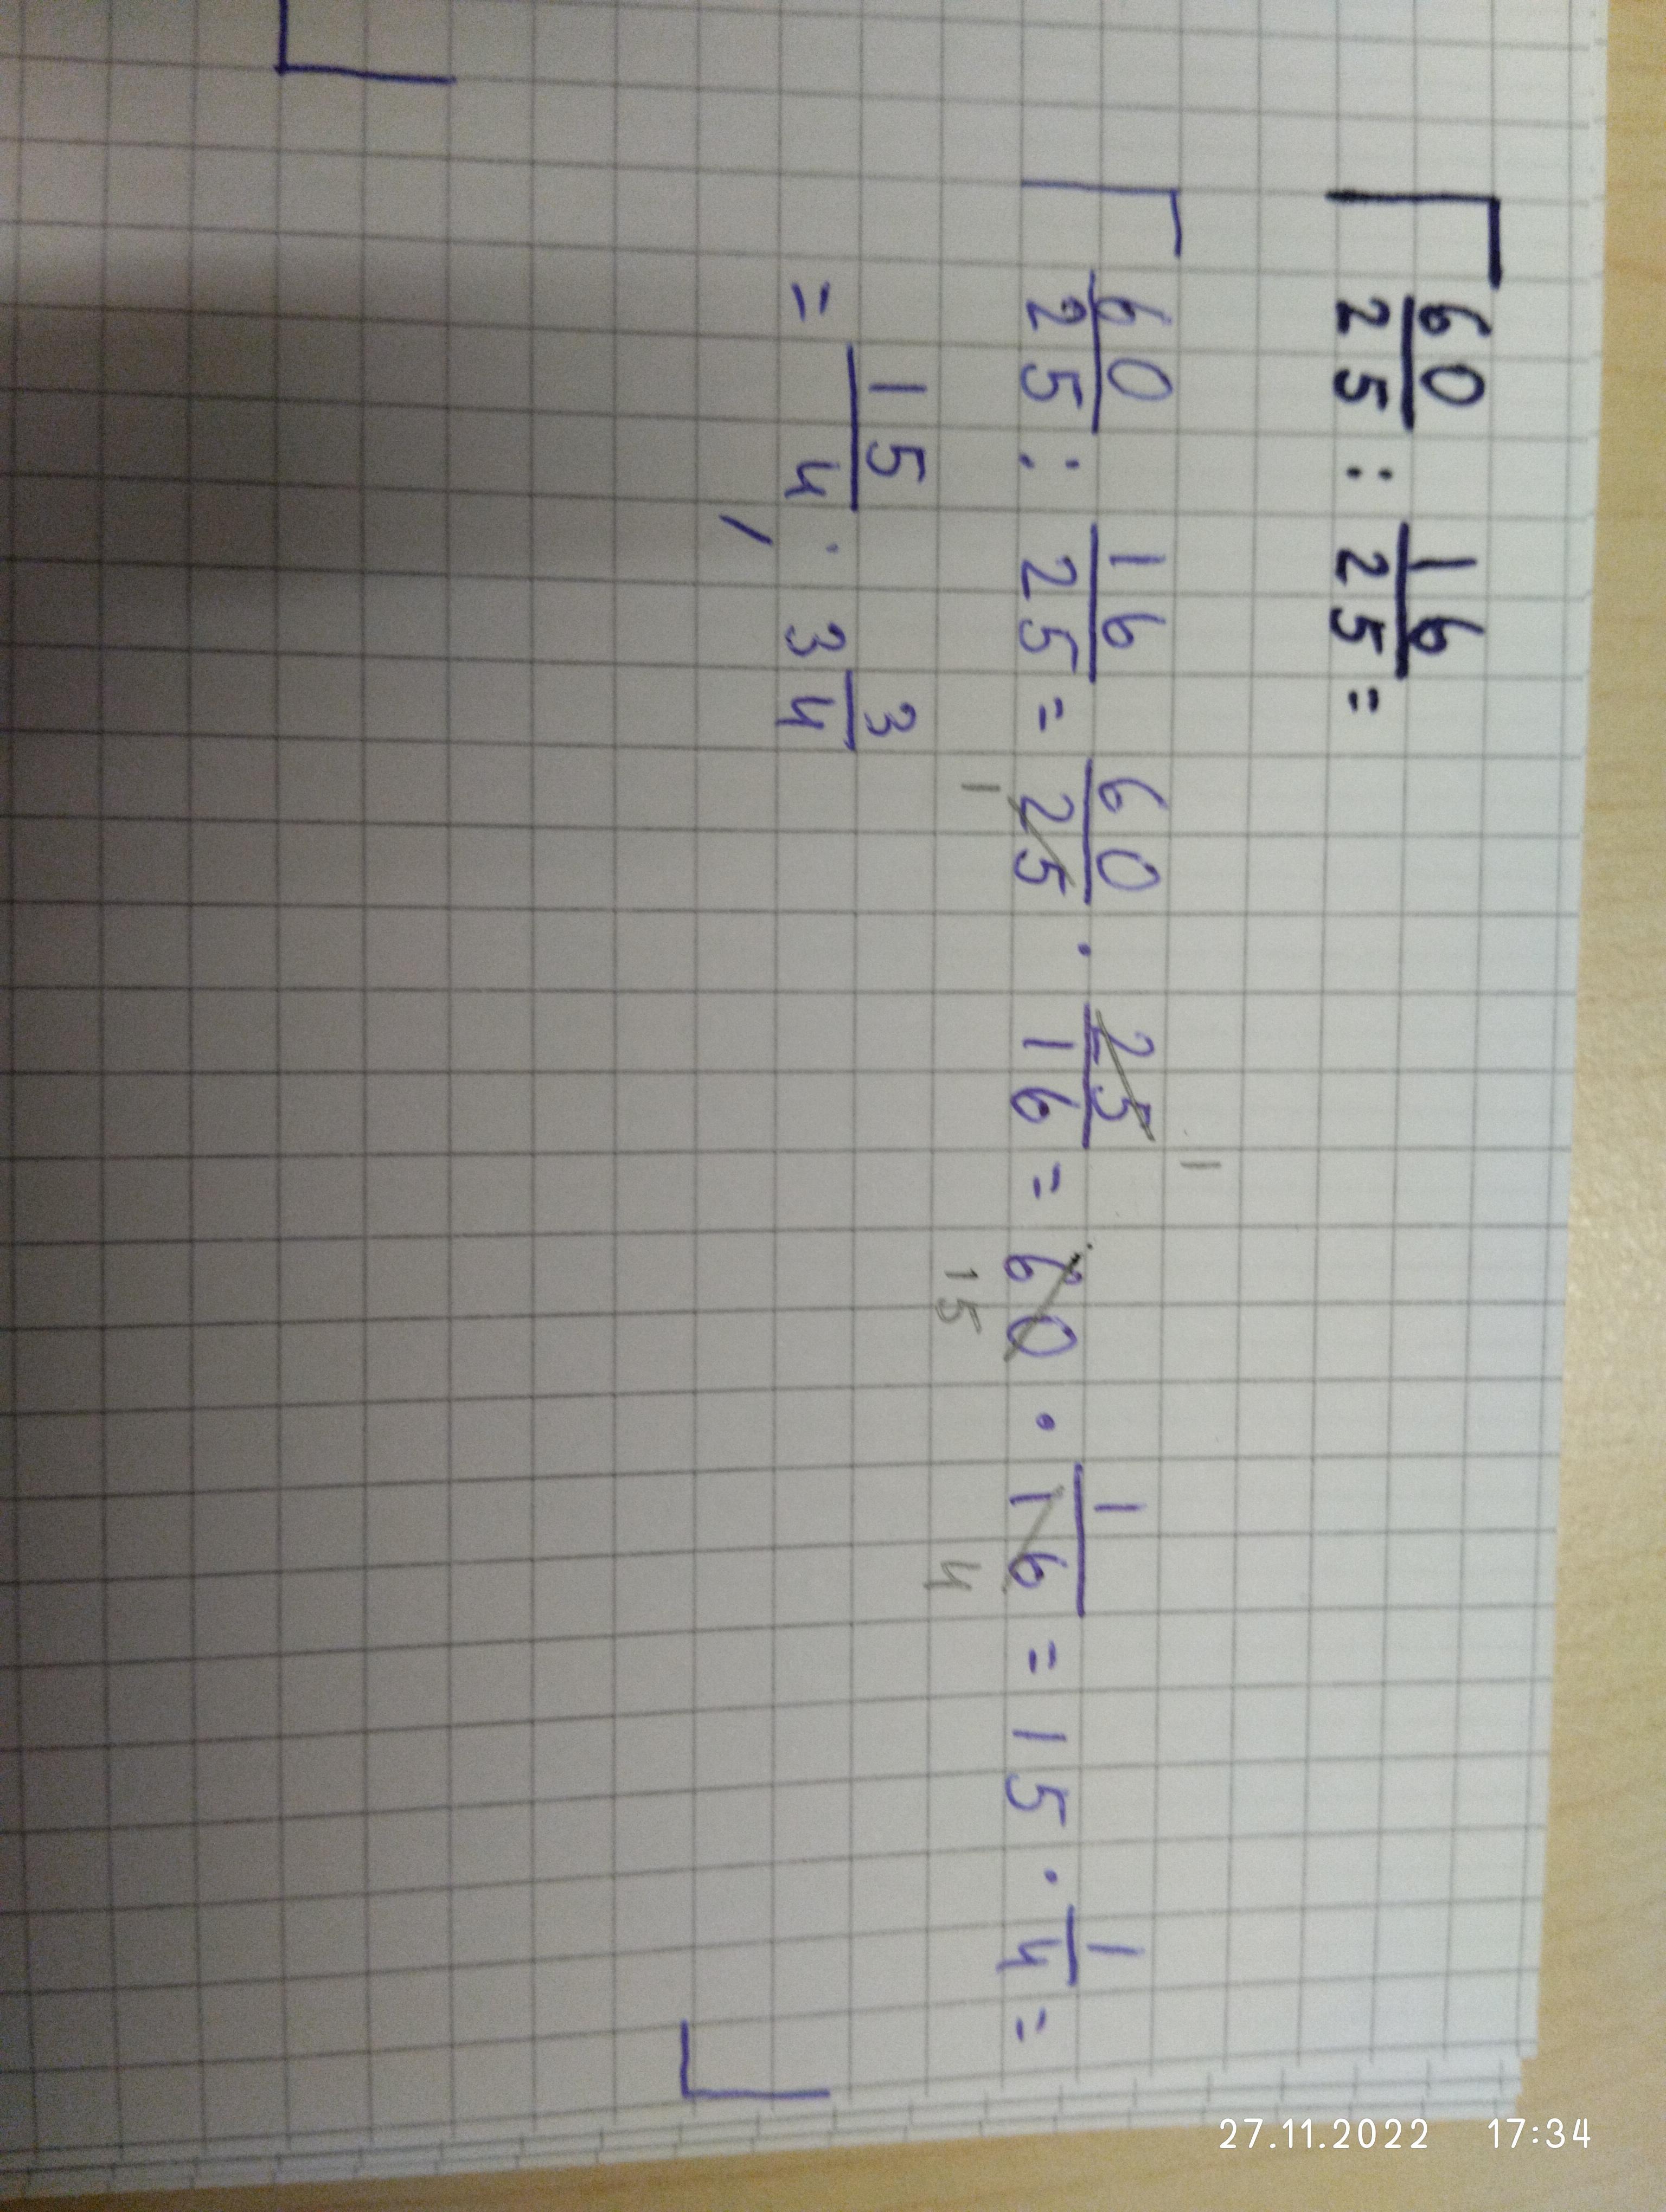 60/25 : 16/25 =
60/25 : 16/25 = 60/25 · 25/16 = 60 · 1/16 = 15 · 1/4 =
1 1 15 4
= 15/4 ; 3 3/4
27.11.2022 17:34